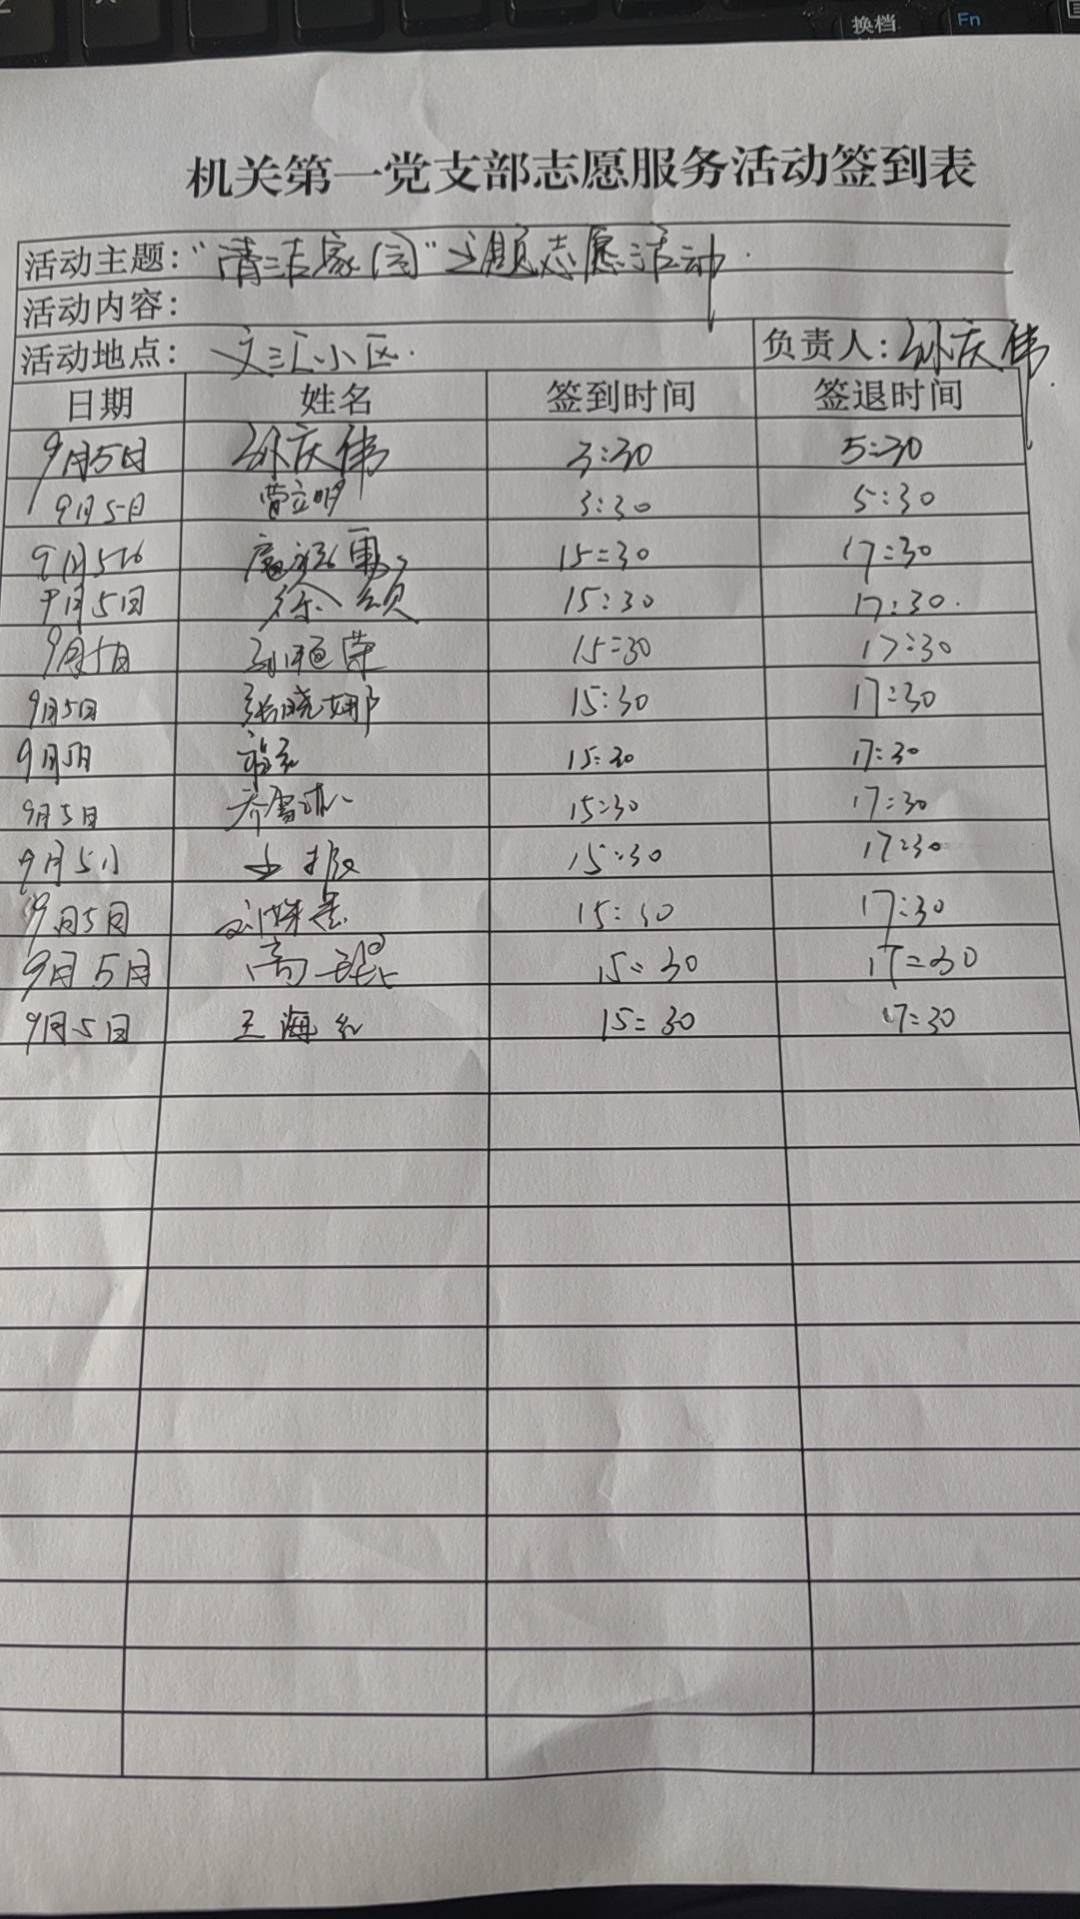 换档
Fn
机关第一党支部志愿服务活动签到表
活动主题：“清洁家园”主题志愿活动.
活动内容：
活动地点： 文汇小区. 负责人：孙庆伟
日期 姓名 签到时间 签退时间
9月5日 孙庆伟 3:30 5:30
9月5日 曹立明 3:30 5:30
9月5日 15:30 17:30
9月5日 徐颂 15:30 17:30.
9月5日 15:30 17:30
9月5日 张晓娜 15:30 17:30
9月5日 15:30 17:30
9月5日 15:30 17:30
9月5日 王振 15:30 17:30
9月5日 15:30 17:30
9月5日 高 15:30 17:30
9月5日 王海红 15:30 17:30